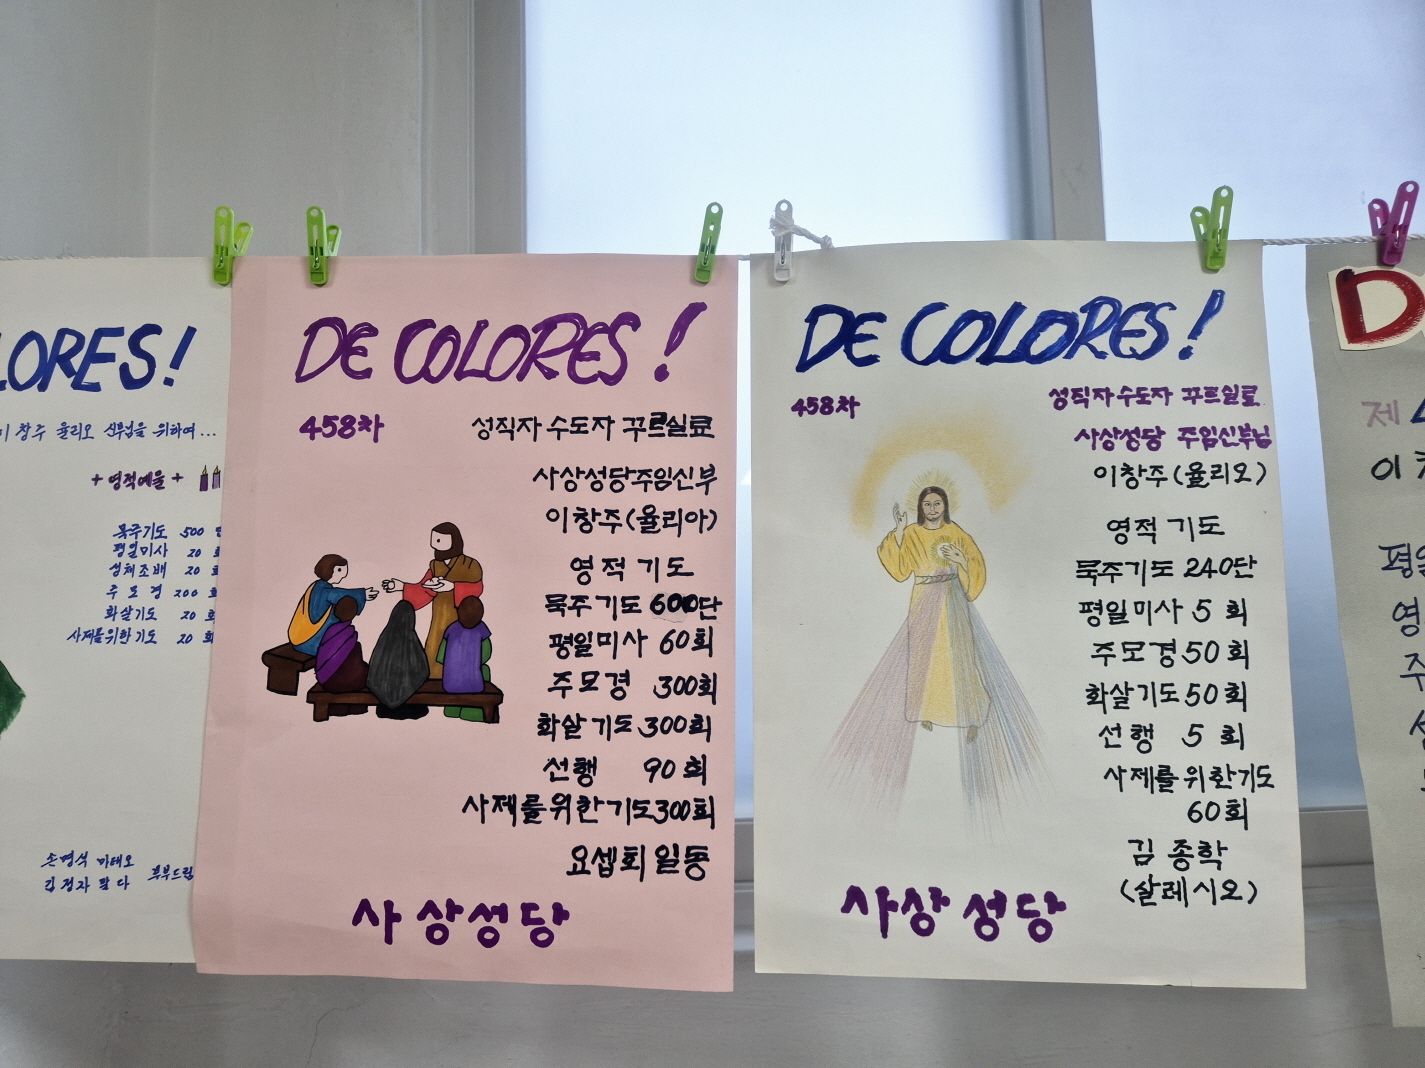 LORES!
이창주 율리오 신부님을 위하여...
+영적예물+
묵주기도 500
평일미사 20
성체조배 20
주모경 200
화살기도 20
사제를위한기도 20
손명식 마태오
김정자 말다 부부드림
DE COLORES!
458차 성직자 수도자 꾸르실료
사상성당주임신부
이창주(율리아)
영적기도
묵주기도 600단
평일미사 60회
주모경 300회
화살기도 300회
선행 90회
사제를위한기도300회
요셉회 일동
사상성당
DE COLORES!
458차 성직자수도자 꾸르실료
사상성당 주임신부님
이창주(율리오)
영적기도
묵주기도 240단
평일미사 5회
주모경 50회
화살기도 50회
선행 5회
사제를위한기도
60회
김종학
(살레시오)
사상성당
D
제
이
평일
영
주